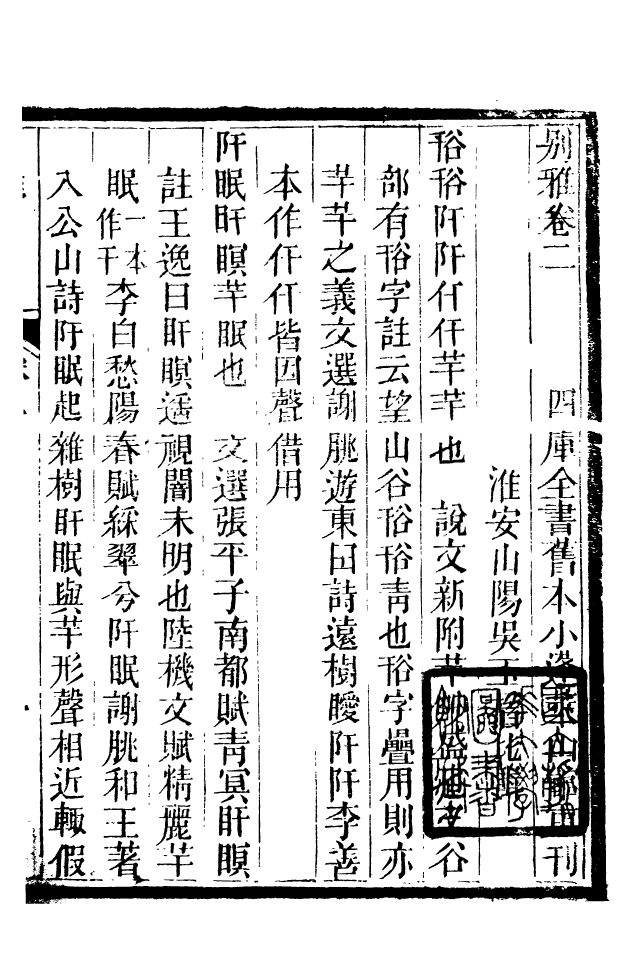 别雅卷二　四庫全書舊本小逢萊山館重刊
淮安山陽吳玉搢
谸谸阡阡仟仟芊芊也　說文新附芊艸盛也谷
部有谸字註云望山谷谸谸青也谸字疊用則亦
芊芊之義文選謝朓遊東田詩遠樹曖阡阡李善
本作仟仟皆因聲借用
阡眠盰瞑芊眠也　文選張平子南都賦青冥盰瞑
註王逸曰盰瞑遥視闇未明也陸機文賦精麗芊
眠一本作干李白愁陽春賦綵翠兮阡眠謝朓和王著
入公山詩阡眠起雜樹盰眠與芊形聲相近輙假